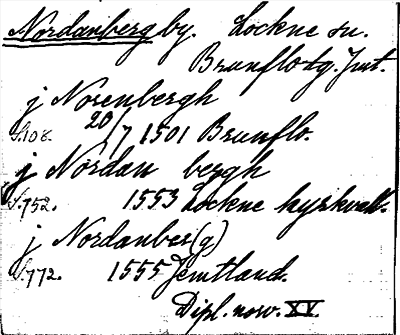 Nordanberg by. Lockne sn.
Brunflo tg. Jmt.
j Norenbergh
S.108. 20/7 1501 Brunflo.
j Nordan bergh
S.752. 1553 Lockne kyrkvall.
j Nordanber(g)
S.772. 1555 Jemtland.
Dipl. norv. XV.